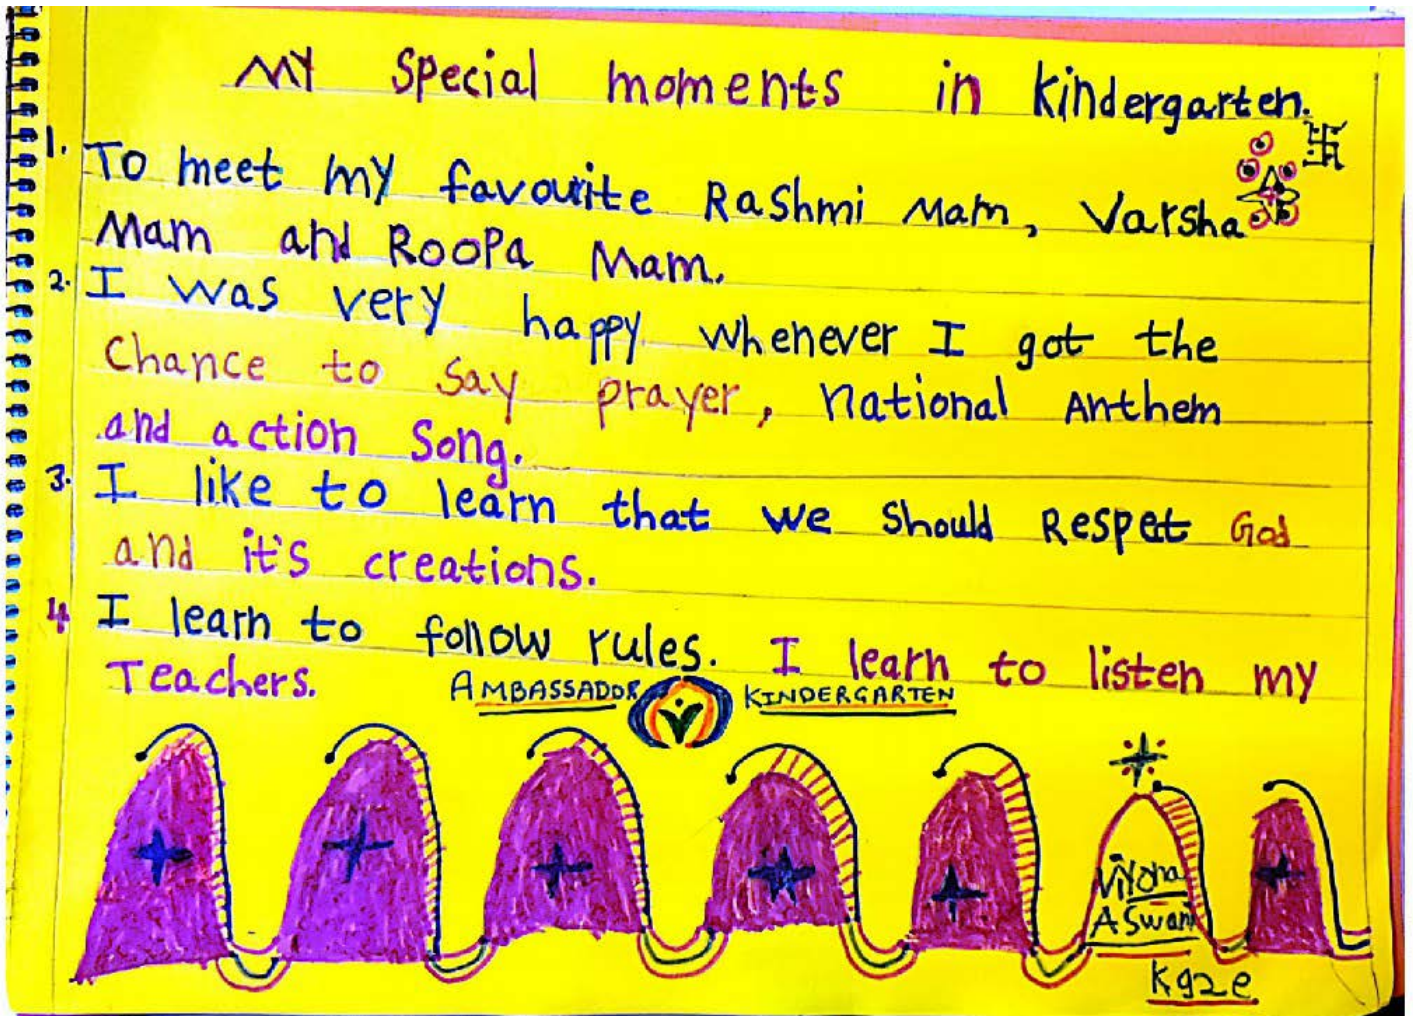 My Special moments in kindergarten.
1. To meet my favourite Rashmi Mam, Varsha
Mam and Roopa Mam.
2. I was very happy whenever I got the
Chance to say prayer, National Anthem
and action Song.
3. I like to learn that we should Respet God
and it's creations.
4 I learn to follow rules. I learn to listen my
Teachers.
AMBASSADOR KINDERGARTEN
Aswani
kg2e